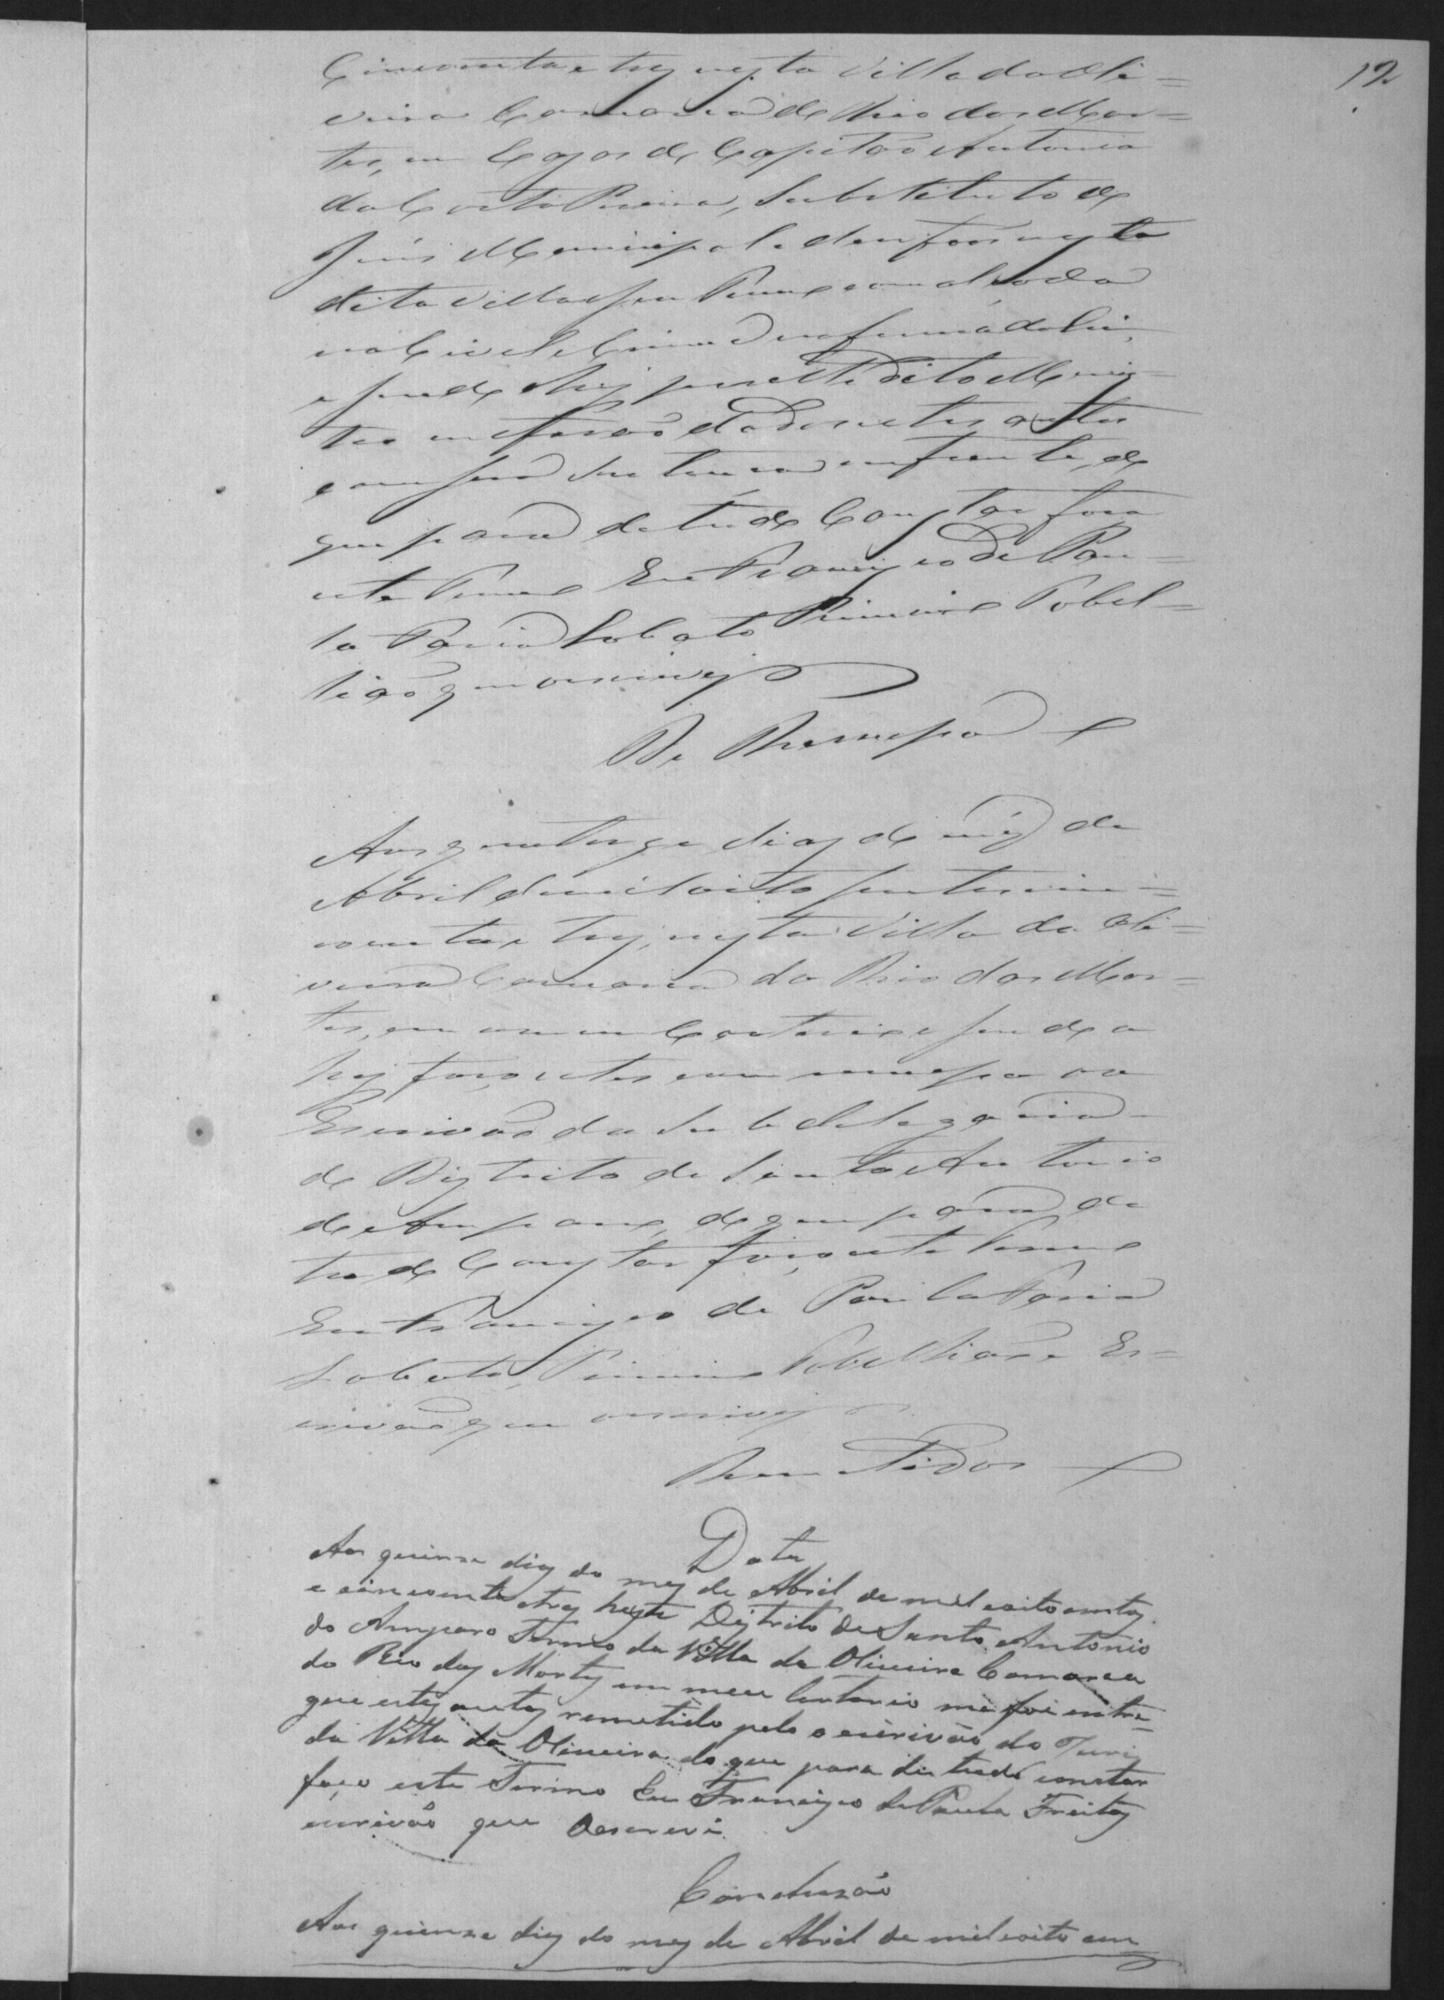 12
Cincoenta e tres nesta Villa da Oli=
veira Comarca do Rio das Mor=
tes, em Cazas do Capitão Antonio
da Costa Pereira, Substituto do
Juis Municipal e dos Orfãos nesta
dita Villa e seu Termo com alçada
no Civel e Crime na forma da Lei,
e sendo ahy por elle dito Minis=
tro me forão dados estes autos
com sua em frente, do
que para de tudo Constar faço
este Termo Eu Francisco de Pau=
la Faria Lobato Primeiro Tabel=
lião que o escrevy
De Remessa
Aos quatorze dias do mez de
Abril de mil oito sentos cin=
coenta e trez, nesta Villa da Oli=
veira Comarca do Rio das Mor=
tes, em meu Cartorio e sendo a
hy faço estes com remessa ao
Escrivão da Subdelegacia
do Districto de Santo Antonio
do Amparo, do que para de
tudo Constar faço este Termo
Eu Francisco de Paula Faria
Lobato, Primeiro Tabellião e Es=
crivão que o escrevy
Remetidos
Data
Aos quinze dias do mez de Abril de mil eoito centos
e cincoenta etres neste Distrito de Santo Antonio
do Amparo Termo da Villa da Oliveira Comarca
do Rio das Mortes em meu Cartorio me foi entre=
gue estes autos remetido pelo o escrivão do Juri
da Villa da Oliveira do que para de tudo constar
faço este Termo Eu Francisco de Paula Freitas
escrivão que oescrevi
Concluzão
Aos quinze dias do mez de Abril de mil eoito cen